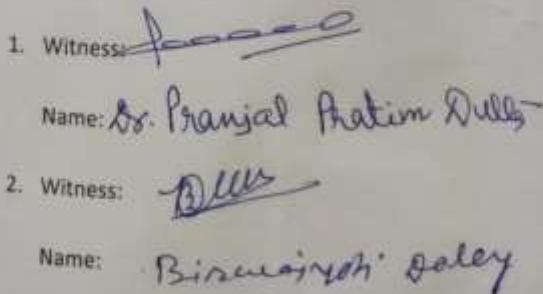 1. Witness:
Name: Dr. Pranjal Pratim Dutta
2. Witness:
Name: Biswajyoti Doley